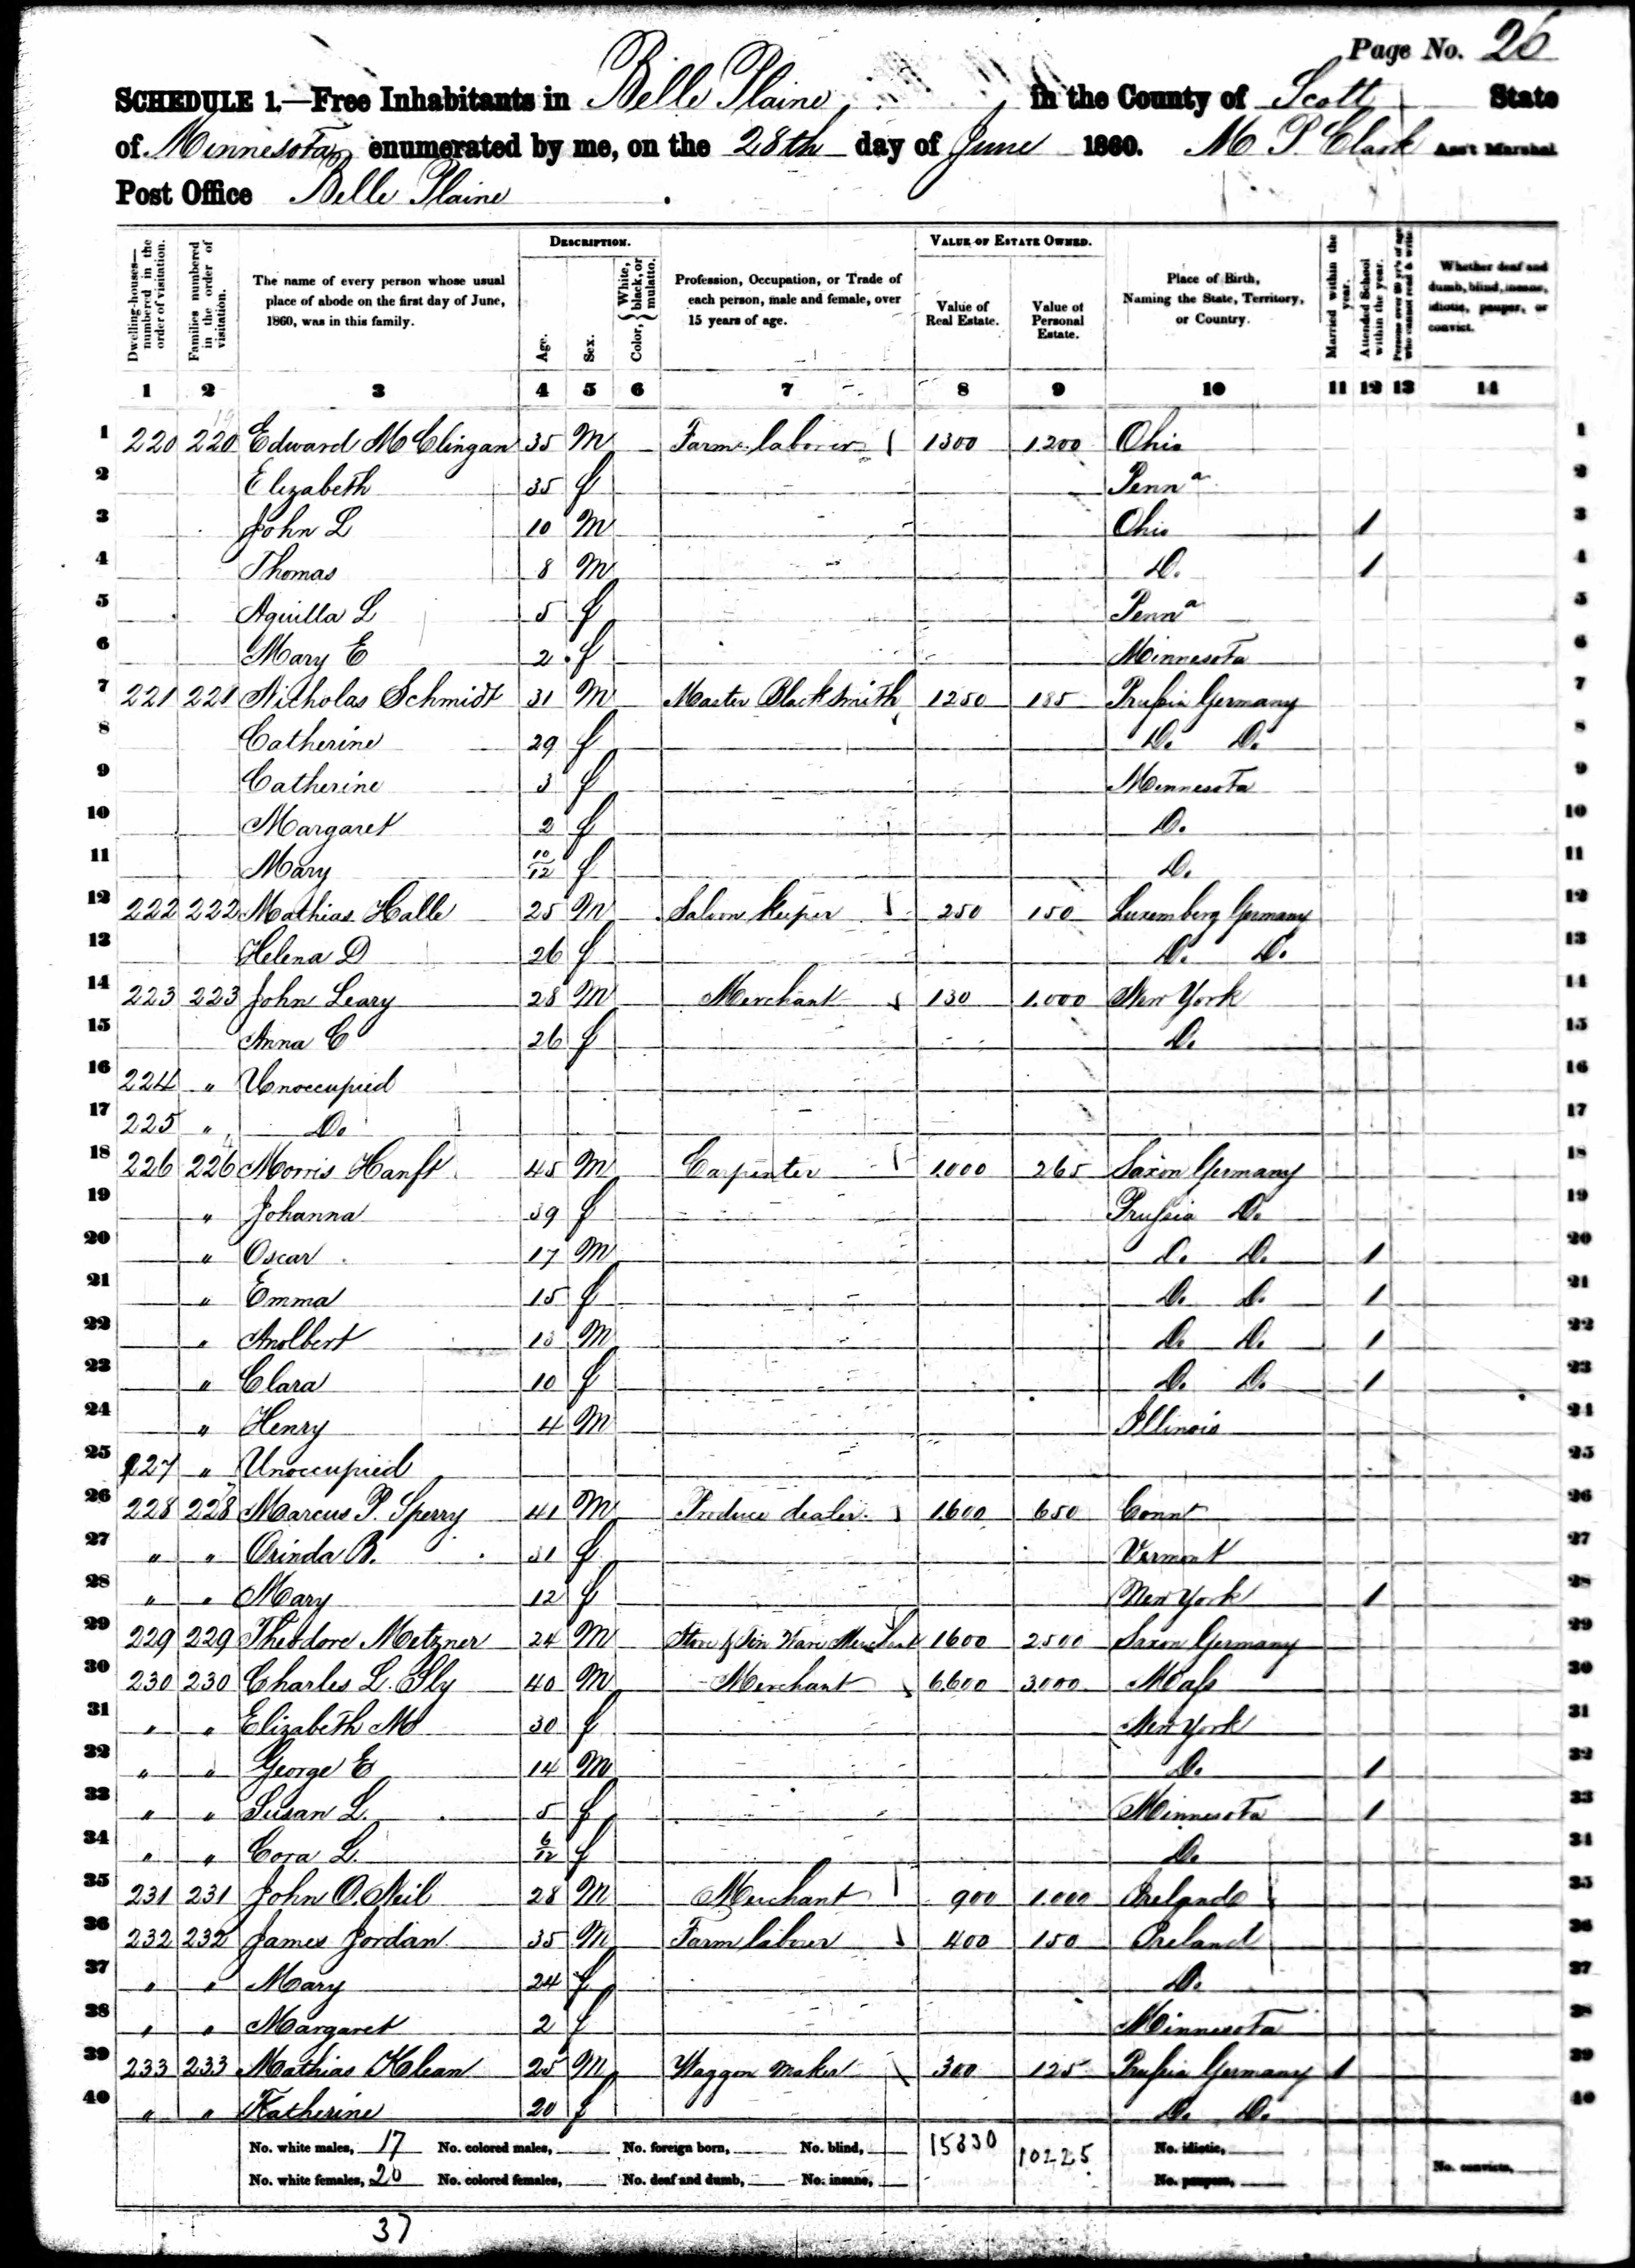 Page No. 26
SCHEDULE 1.—Free Inhabitants in Belle Plaine in the County of Scott State
of Minnesota enumerated by me, on the 28th day of June 1860. M P. Clark Ass't Marshal
Post Office Belle Plaine
Dwelling-houses—numbered in the order of visitation.
Families numbered in the order of visitation.
The name of every person whose usual place of abode on the first day of June, 1860, was in this family.
DESCRIPTION.
Age.
Sex.
Color, { White, black, or mulatto.
Profession, Occupation, or Trade of each person, male and female, over 15 years of age.
VALUE OF ESTATE OWNED.
Value of Real Estate.
Value of Personal Estate.
Place of Birth, Naming the State, Territory, or Country.
Married within the year.
Attended School within the year.
Persons over 20 y'rs of age who cannot read & write
Whether deaf and dumb, blind, insane, idiotic, pauper, or convict.
1 2 3 4 5 6 7 8 9 10 11 12 13 14
1 220 220 Edward McClingan 35 M Farm laborer 1300 1.200 Ohio 1
2 Elizabeth 35 f Penna 2
3 John L 10 M Ohio 1 3
4 Thomas 8 M D. 1 4
5 Aquilla L 5 f Penna 5
6 Mary E 2 f Minnesota 6
7 221 221 Nicholas Schmidt 31 M Master Blacksmith 1250 185 Prussia Germany 7
8 Catherine 29 f D. D. 8
9 Catherine 3 f Minnesota 9
10 Margaret 2 f D. 10
11 Mary 10/12 f D. 11
12 222 222 Mathias Halle 25 M Saloon keeper 250 150 Luxemberg Germany 12
13 Helena D 26 f D. D. 13
14 223 223 John Leary 28 M Merchant 130 1.000 New York 14
15 Anna C 26 f D. 15
16 224 " Unoccupied 16
17 225 " Do 17
18 226 226 Morris Hanft 45 M Carpenter 1.000 265 Saxon Germany 18
19 " Johanna 39 f Prussia D. 19
20 " Oscar 17 M D. D. 1 20
21 " Emma 15 f D. D. 1 21
22 " Anolbert 13 M D. D. 1 22
23 " Clara 10 f D. D. 1 23
24 " Henry 4 M Illinois 24
25 227 " Unoccupied 25
26 228 228 Marcus P. Sperry 41 M Produce dealer 1.600 650 Connt 26
27 " " Orinda B. 31 f Vermont 27
28 " " Mary 12 f New York 1 28
29 229 229 Theodore Metzner 24 M Stove & Tin Ware Merchant 1600 2500 Saxon Germany 29
30 230 230 Charles L. Sly 40 M Merchant 6.600 3.000 Mass 30
31 " " Elizabeth M 30 f New York 31
32 " " George E 14 M D. 1 32
33 " " Susan L. 5 f Minnesota 1 33
34 " " Cora L. 6/12 f D. 34
35 231 231 John O.Neil 28 M Merchant 900 1.000 Ireland 35
36 232 232 James Jordan 35 M Farm laborer 400 150 Ireland 36
37 " " Mary 24 f D. 37
38 " " Margaret 2 f Minnesota 38
39 233 233 Mathias Klean 25 M Waggon Maker 300 125 Prussia Germany 1 39
40 " " Katherine 20 f D. D. 40
No. white males, 17 No. colored males, No. foreign born, No. blind, 15330 10225 No. idiotic,
No. white females, 20 No. colored females, No. deaf and dumb, No. insane, No. paupers, No. convicts,
37